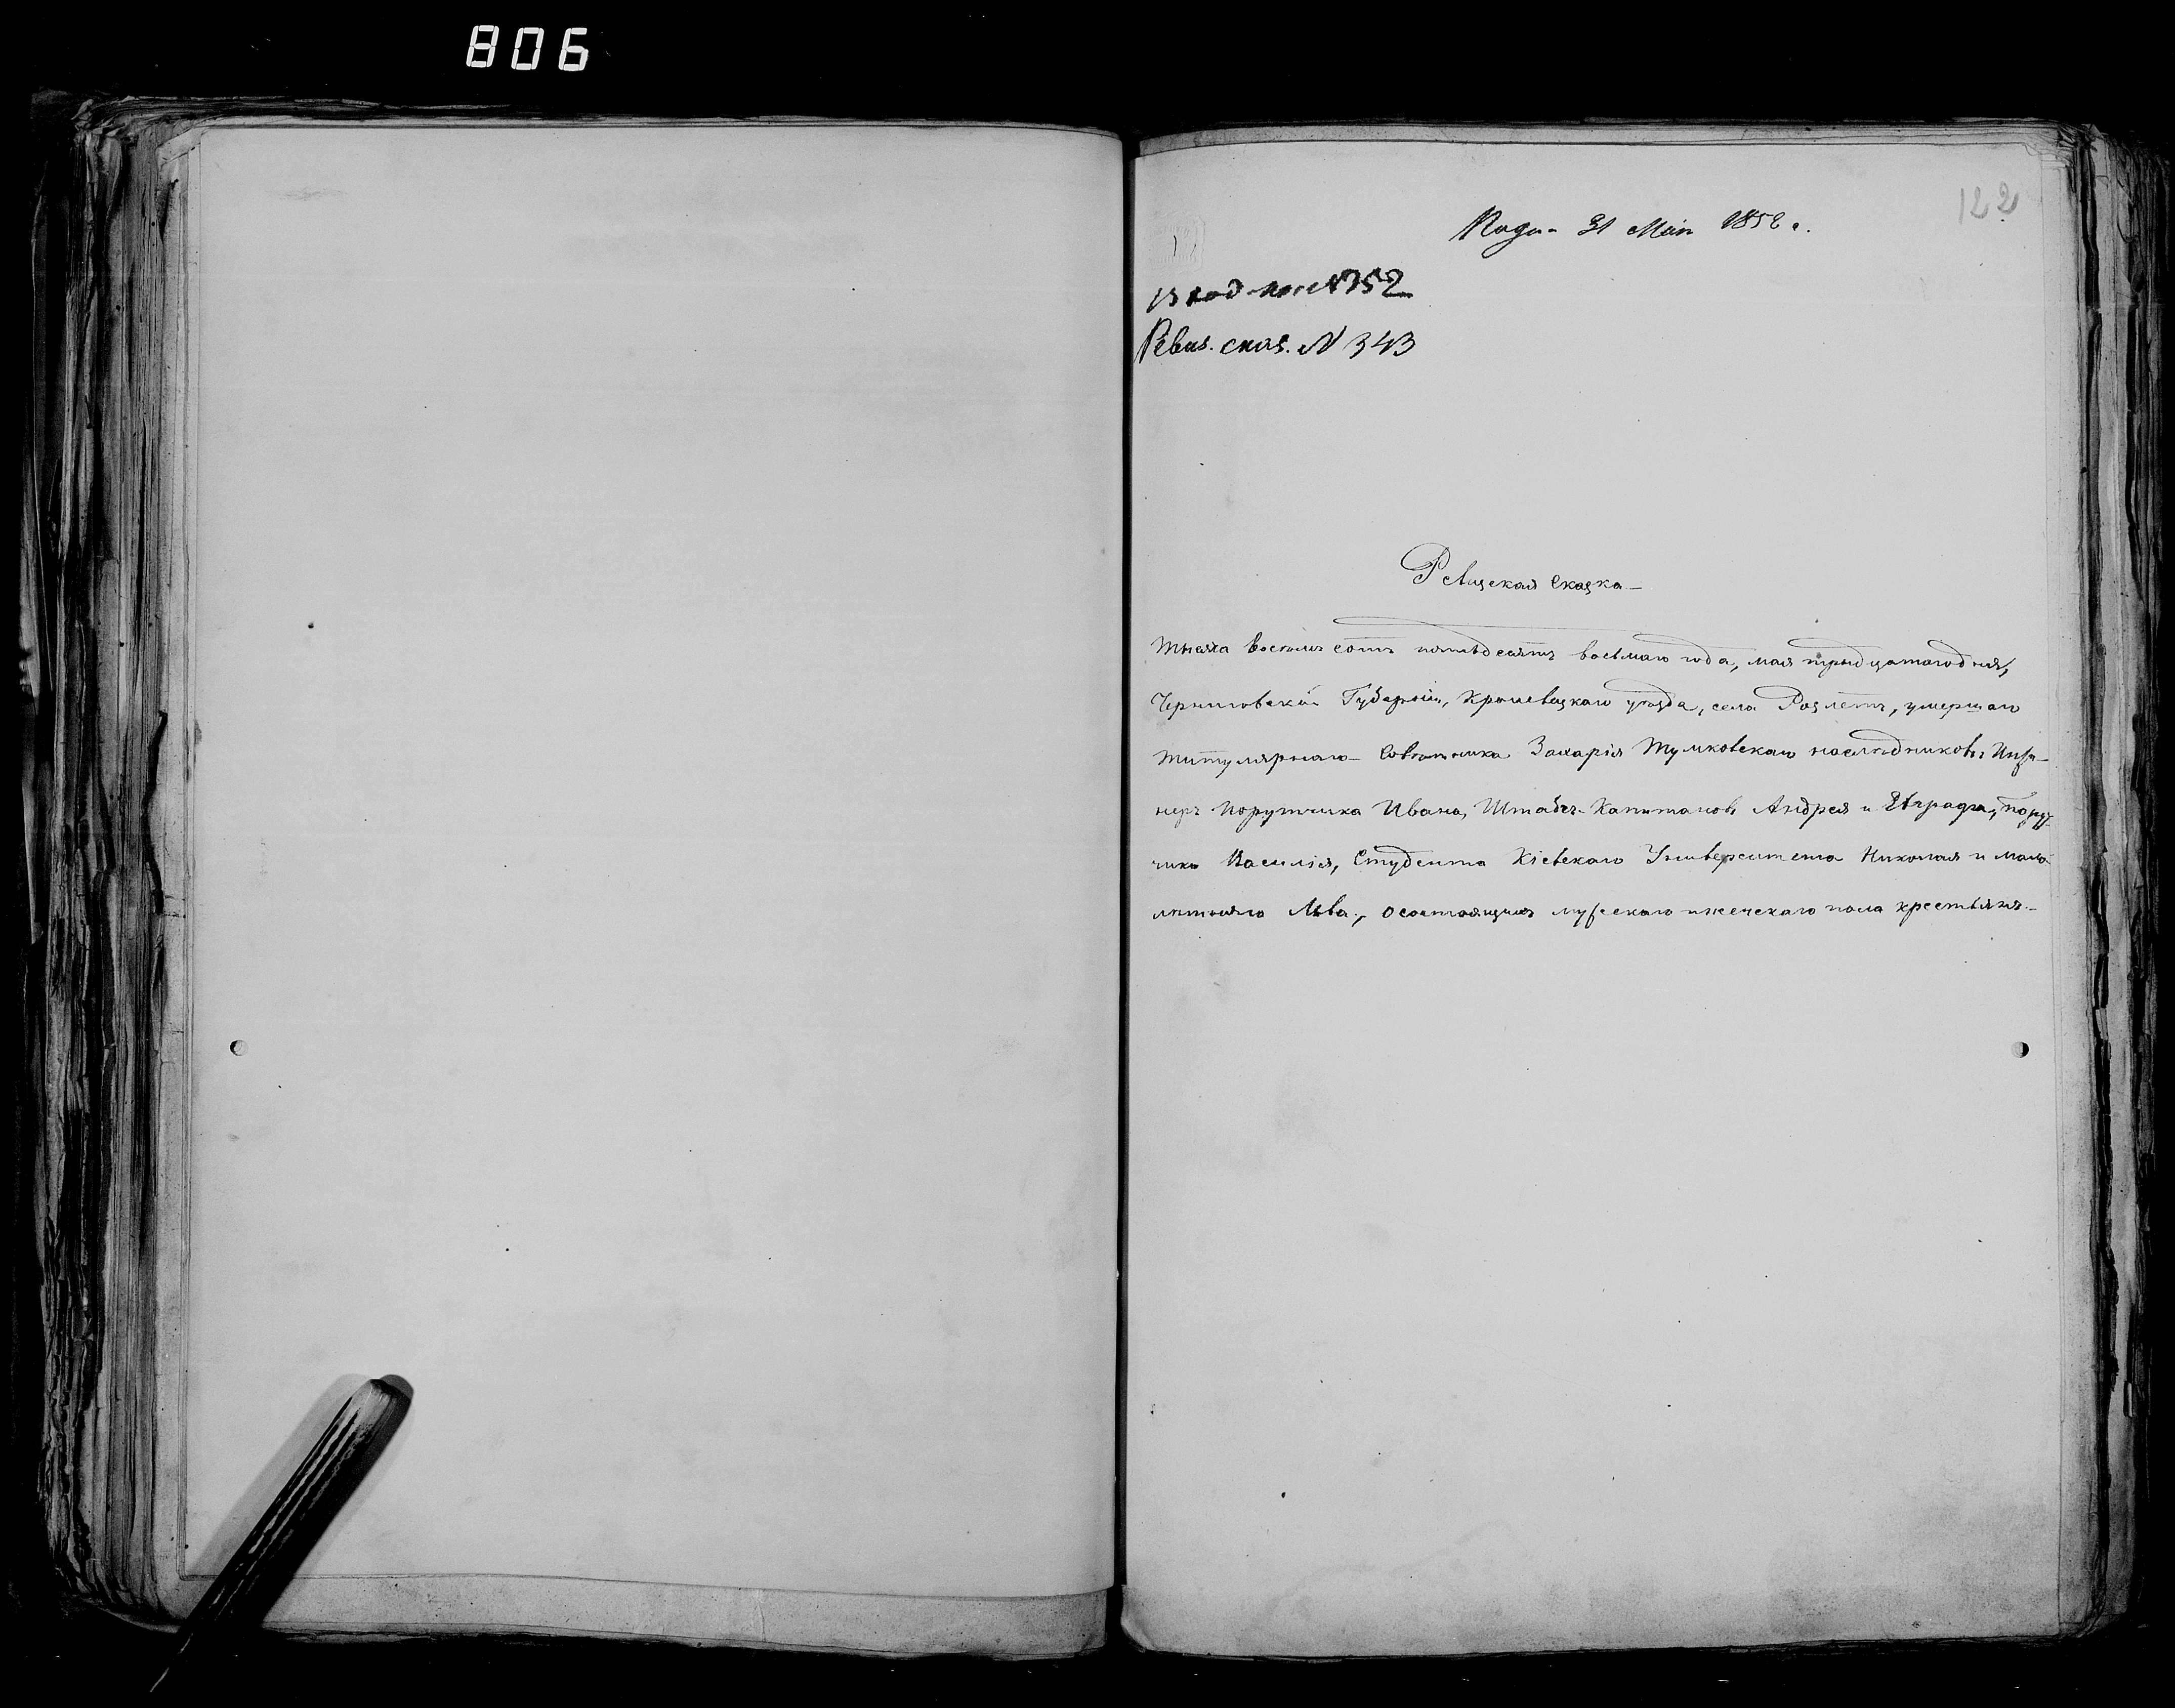 806
122
Пода- 31 Мая 1858 г.
Вход. № 352
Ревиз. сказ. № 343
Ревизская сказка
тысяча восемь сотъ пятьдесятъ восьмаго года, мая тридцатаго дня,
Черниговской Губерніи, Кролевецкаго уѣзда, села Розлетъ, умершаго
титулярнаго Совѣтника Захарія Тумковскаго наслѣдниковъ: Инже-
неръ Порутчика Ивана, Штабсъ-Капитановъ Андрея и Евграфа, Порут-
чика Василія, Студента Кіевскаго Университета Николая и мало-
лѣтняго Льва, о состоящихъ мужескаго и женскаго пола крестьянъ-